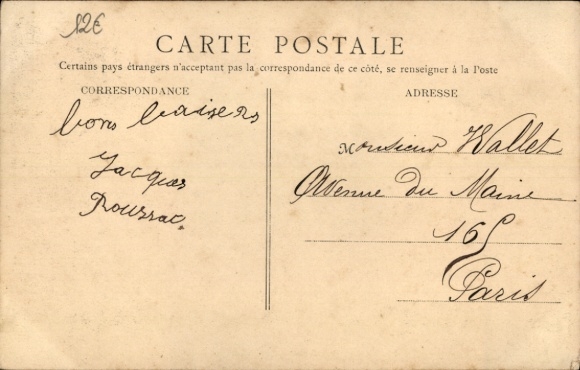 12€
CARTE POSTALE
Certains pays étrangers n'acceptant pas la correspondance de ce côté, se renseigner à la Poste
CORRESPONDANCE
bons baisers
Jacques
Rouzzac
ADRESSE
Monsieur Wallet
Avenue du Maine
165
Paris